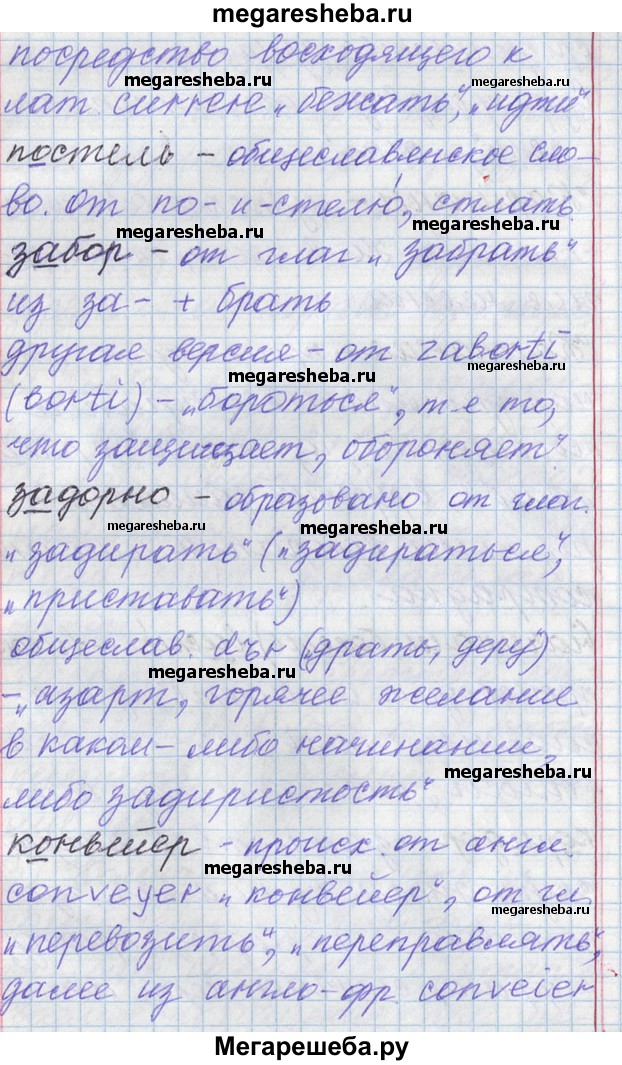 megaresheba.ru
посредство восходящего к
megaresheba.ru megaresheba.ru
лат. currere „бежать“, „идти“
постель – общеславянское сло-
megaresheba.ru
во. от по- и -стелю, стлать
megaresheba.ru megaresheba.ru
забор – от глаг „забрать“
из за- + брать
другая версия – от zaborti
megaresheba.ru
(borti) – „бороться“, т.е то,
что защищает, обороняет“
задорно – образовано от глаг.
megaresheba.ru megaresheba.ru
„задирать“ („задираться“,
„приставать“)
общеслав. dъr (драть, деру)
megaresheba.ru
– „азарт, горячее желание
в каком-либо начинании,
megaresheba.ru
либо задиристость“
конвейер – происх. от англ.
megaresheba.ru
conveyer „конвейер“, от гл.
megaresheba.ru
„перевозить“, „переправлять“,
далее из англо-фр. conveier
Мегарешеба.ру